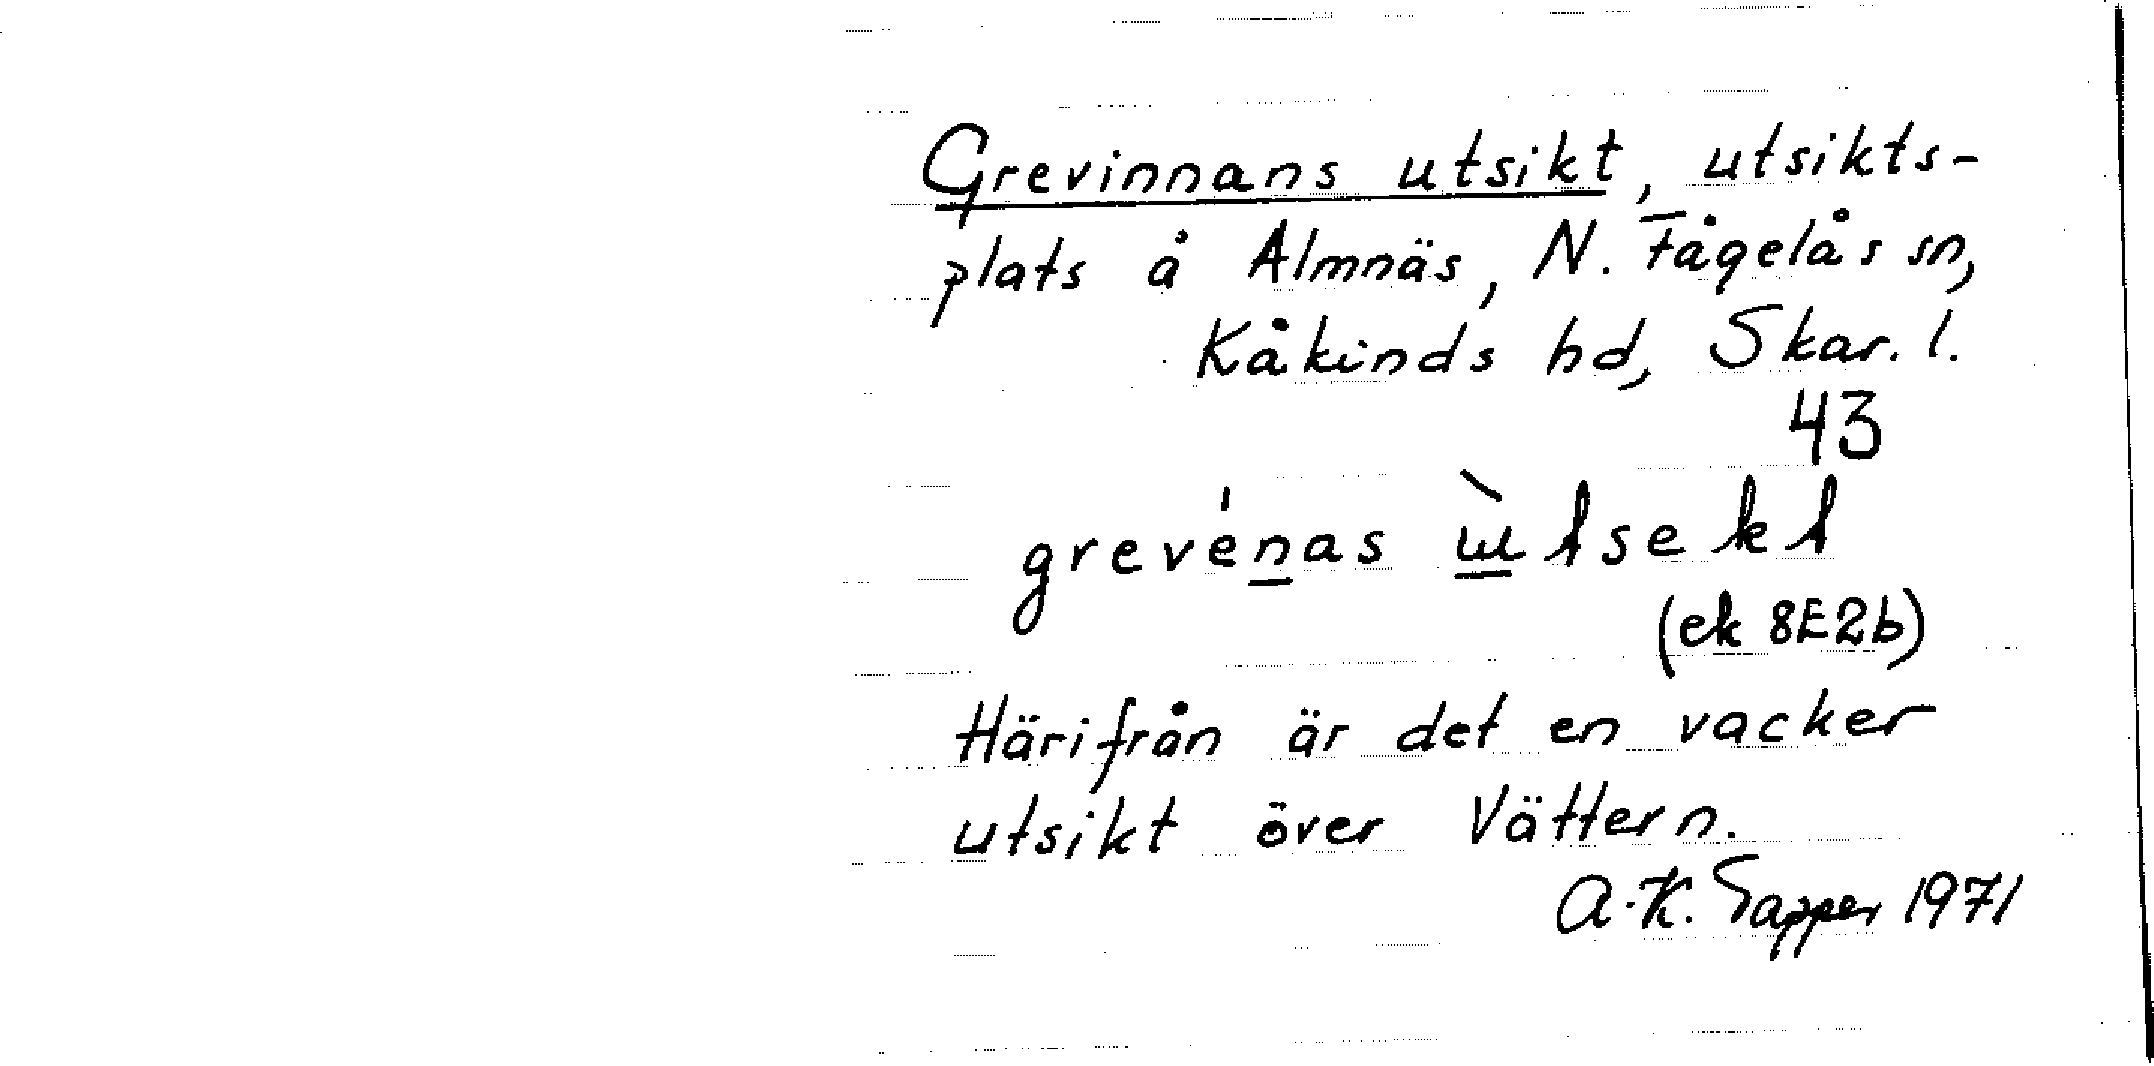 Grevinnans utsikt, utsikts-
plats å Almnäs, N. Fågelås sn,
Kåkinds hd, Skar. l.
43
grevénas ùtsekt
(ek 8E2b)
Härifrån är det en vacker
utsikt över Vättern.
A.-K. Sapper 1971